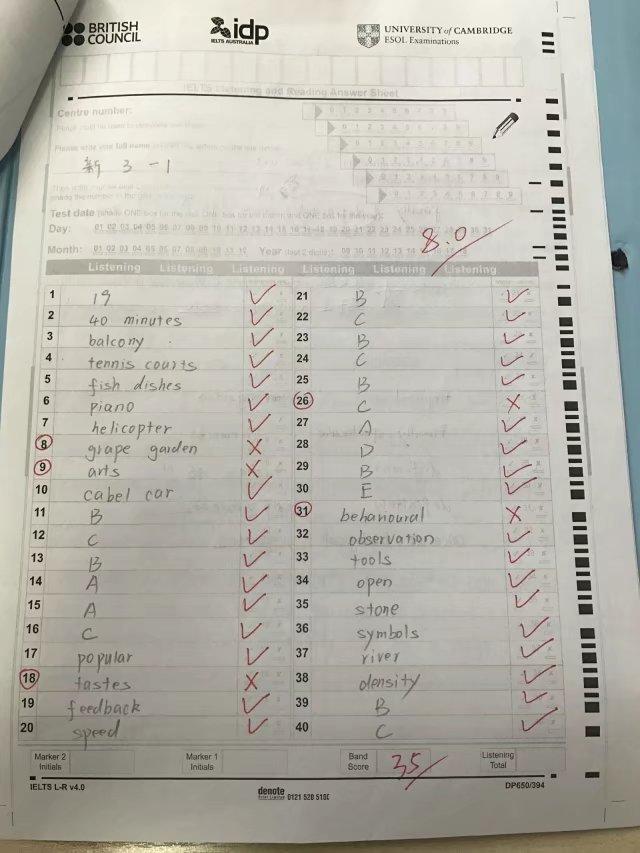 BRITISH COUNCIL
idp
IELTS AUSTRALIA
UNIVERSITY of CAMBRIDGE
ESOL Examinations
IELTS Listening and Reading Answer Sheet
Centre number:
新 3 - 1
Test date
Day: 01 02 03 04 05 06 07 08 09 10 11 12 13 14 15 16 17 18 19 20 21 22 23 24 25 26 27 28 29 30 31
Month: 01 02 03 04 05 06 07 08 09 10 11 12 Year (last 2 digits):
8.0
Listening Listening Listening Listening Listening Listening
1 19
2 40 minutes
3 balcony
4 tennis courts
5 fish dishes
6 piano
7 helicopter
8 grape garden
9 arts
10 cabel car
11 B
12 C
13 B
14 A
15 A
16 C
17 popular
18 tastes
19 feedback
20 speed
21 B
22 C
23 B
24 C
25 B
26 C
27 A
28 D
29 B
30 E
31 behanoural
32 observation
33 tools
34 open
35 stone
36 symbols
37 river
38 density
39 B
40 C
Marker 2 Initials
Marker 1 Initials
Band Score
35
Listening Total
IELTS L-R v4.0
denote
0121 520 5100
DP650/394